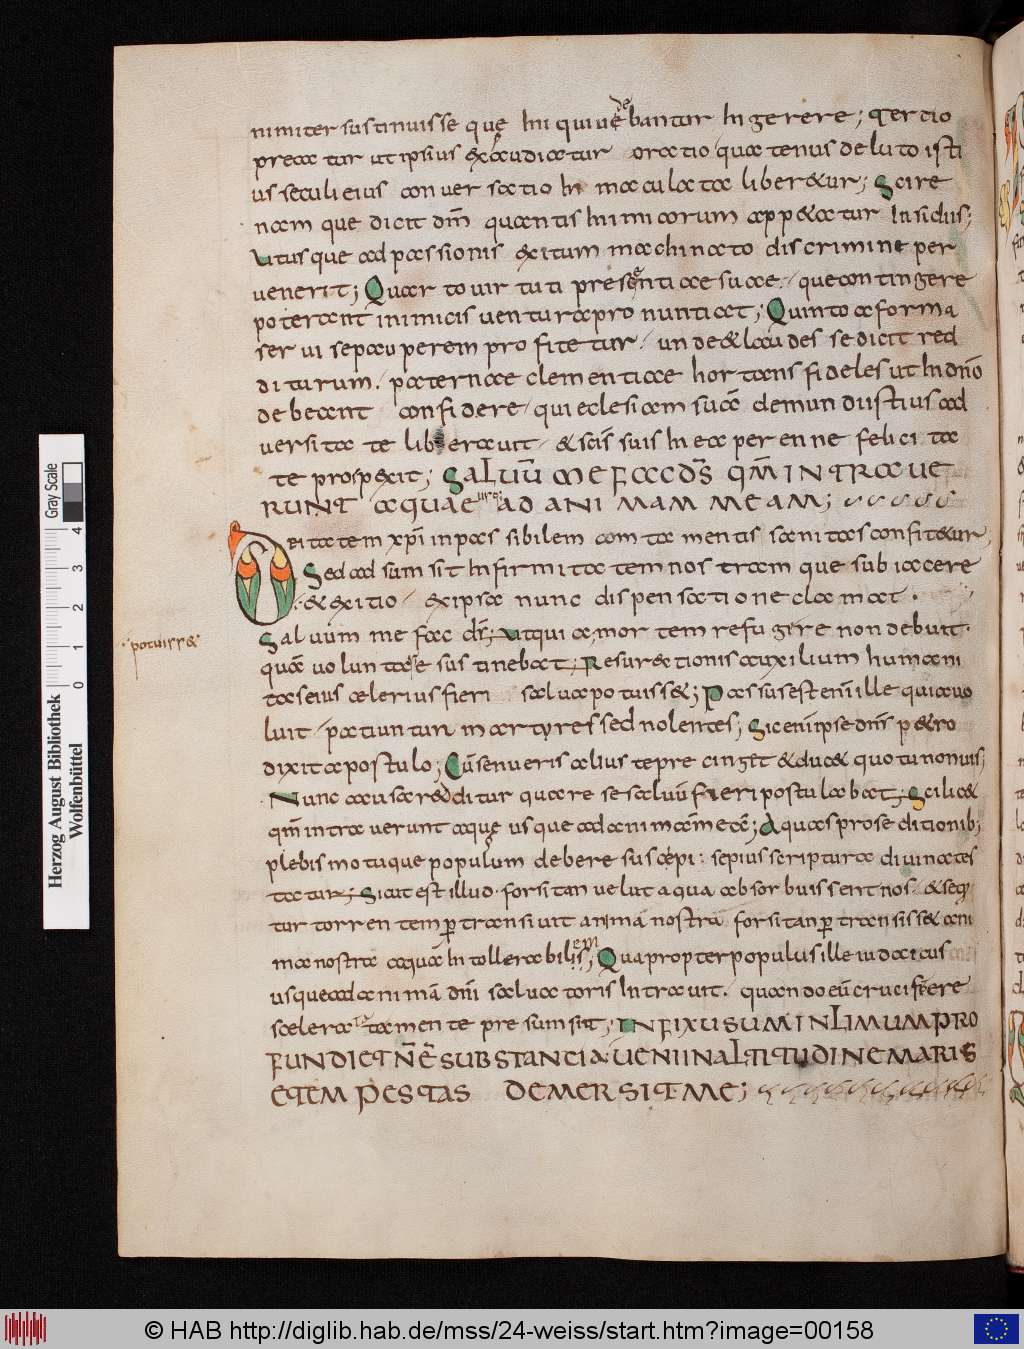 nimiter sustinuisse que hii qui uidebantur Ingerere; Tertio
precatur ut ipsius exaudiatur oratio quatenus de luto isti
us seculi eius conuersatio In maculata liberetur; Scire
nam que dicit dm̄ quantis Inimicorum appetatur Insidiis;
Vt usque ad passionis exitum machinato discrimine per
uenerit; Quarto uirtuti presentiae suae. que contingere
poterant inimicis uentura pronuntiat; Quinto a forma
serui se pauperem profitetur. unde & laudes se dicit red
diturum. paternae clementiae hortans fideles ut In dn̄o
debeant confidere. qui eclesiam suā de mundi istius ad
uersitate liberauit. & scīs suis In ea perenne felicita
te prospexit; SALUŪ ME FAC DS̄ QM̄ INTRAUE
RUNT AQUAE usq; AD ANIMAM MEAM;
Deitatem xp̄i inpassibilem tam mentis sanitas confitetur,
Sed ad sumsit Infirmitatem nostram que subiacere
& exitio. ex ipsa nunc dispensatione clamat.
Saluum me fac ds̄; Vt qui a mortem refugere non debuit.
quā uoluntate sustinebat; Resurectionis auxilium humani
tas eius celerius fieri salua potuisset;
· potuisset ·
Passus est enī ille quia uo
luit. patiuntur martyres sed nolentes; Sic enī ipse dn̄s petro
dixit apostulo; Cū senueris alius te precinget & ducet quo tu non uis;
Nunc causa redditur quare se saluū fieri postulabat; Scilicet
qm̄ intrauerunt aque usque ad animā meā; Aquas pro seditionib;
plebis motuque populum debere suscepi. sepius scriptura diuina tes
tatur; Sicut est illud. forsitan uelut aqua absorbuissent nos. & seq̄
tur torrentem ꝑtransiuit anima nostra forsitan ꝑtransisset ani
ma nostra aquā Intollerabilem; Quapropter populus ille iudaicus
usque ad animā dn̄i saluatoris Intrauit. quando eū crucifigere
scelerata mente presumsit; INFIXUS UM IN LIMUM PRO
FUNDI ET NŌ Ē SUBSTANTIA. UENI IN ALTITUDINE MARIS
ET TEMPESTAS DEMERSIT ME;
Herzog August Bibliothek
Wolfenbüttel
Gray Scale
0 1 2 3 4
© HAB http://diglib.hab.de/mss/24-weiss/start.htm?image=00158